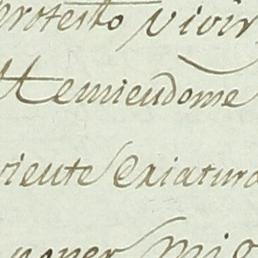 protesto vivir
temiendome
viente Criatura
poner mi